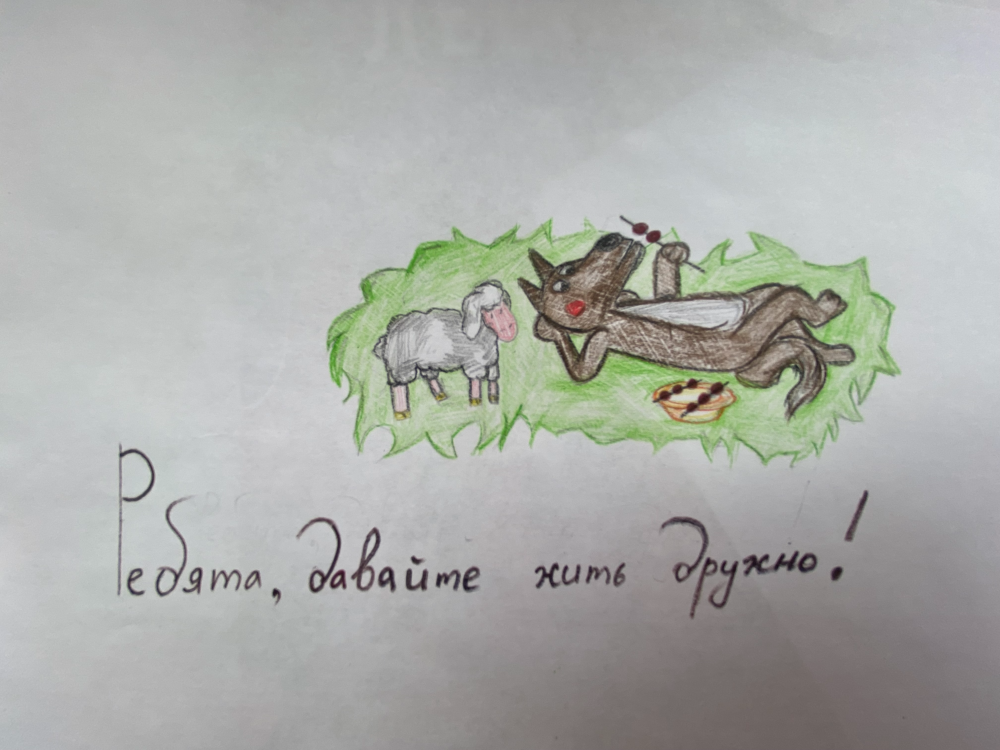 Ребята, давайте жить дружно!